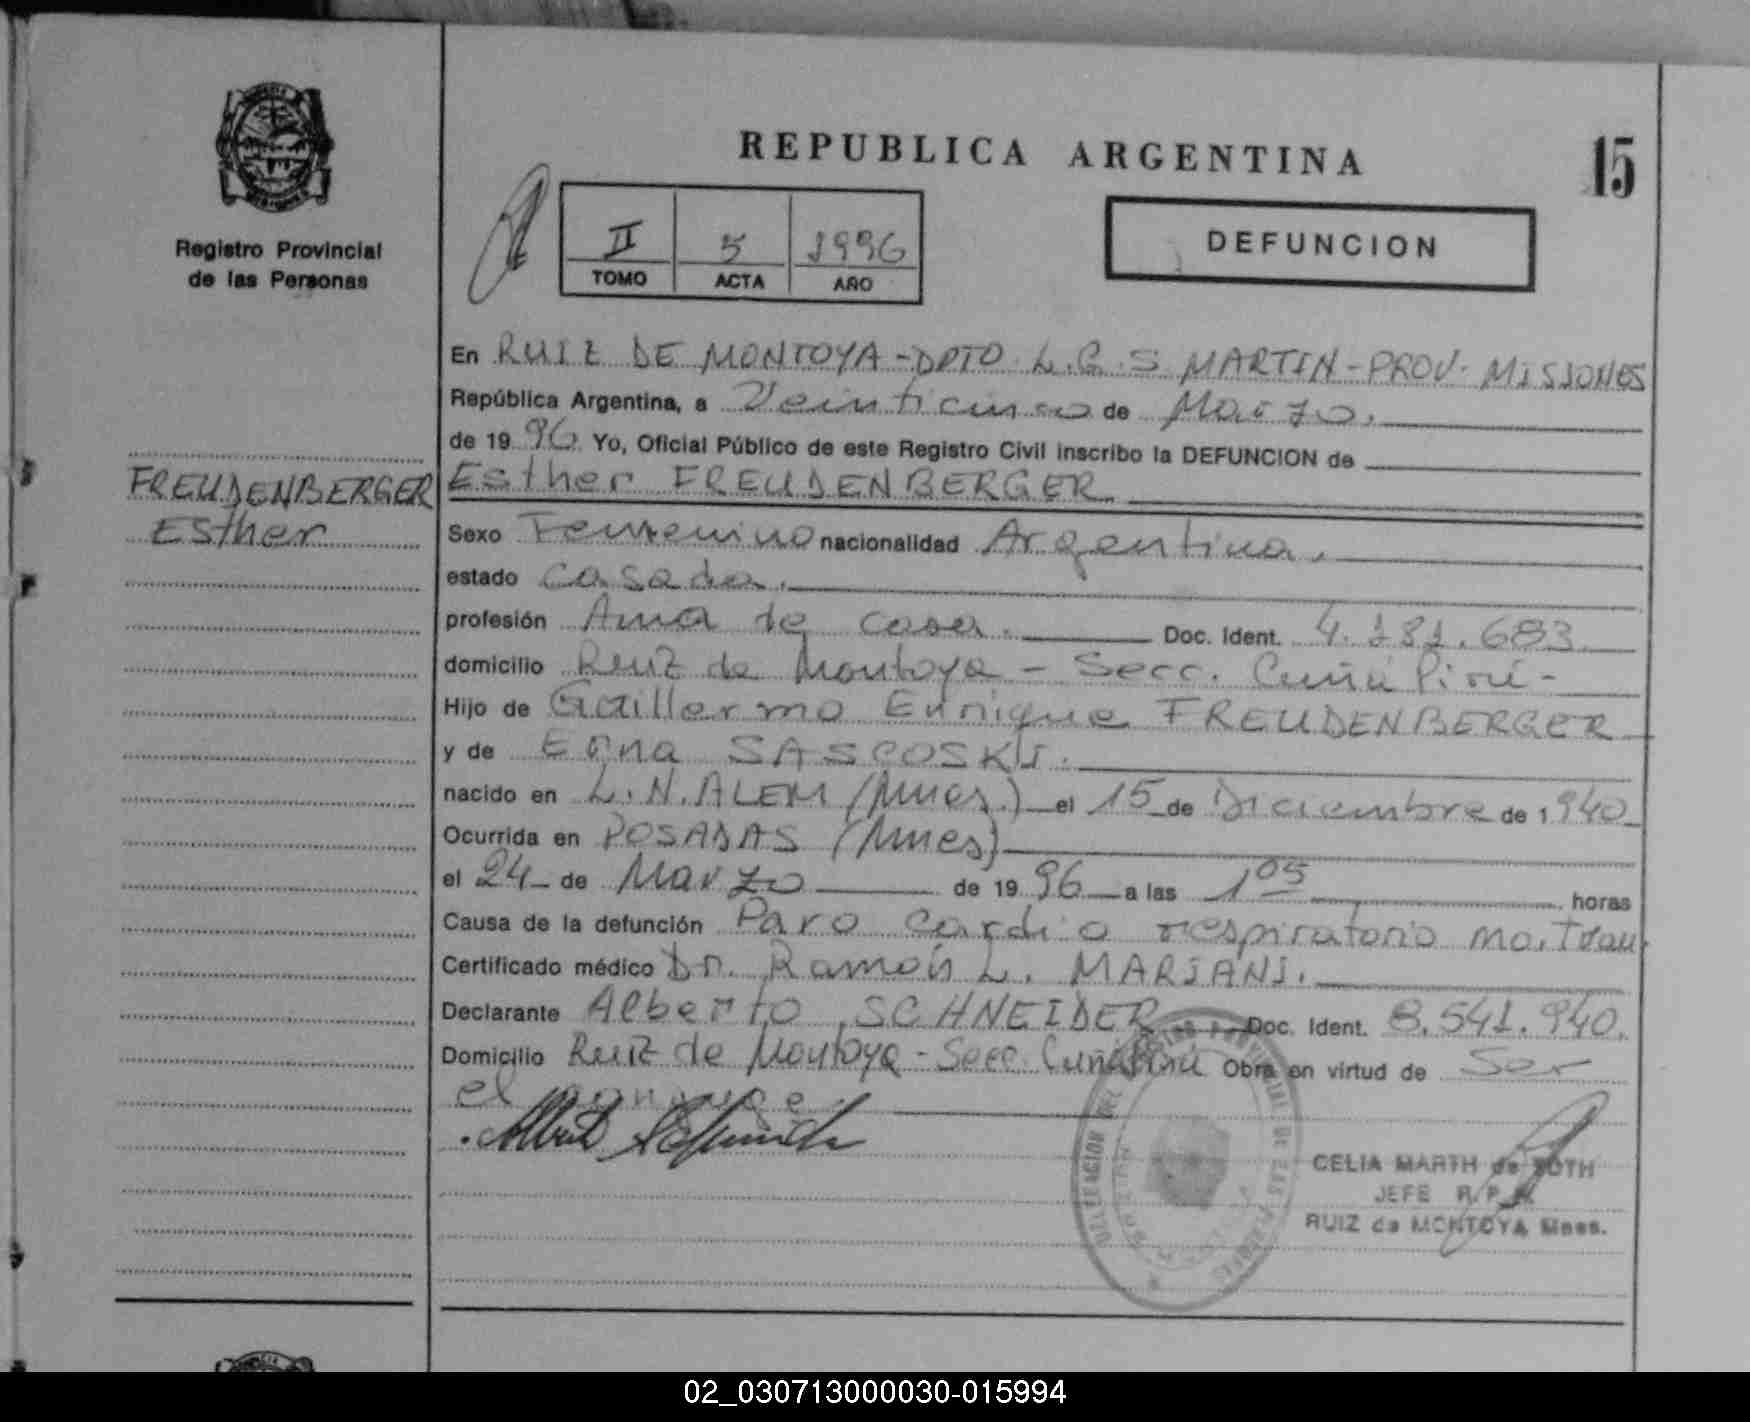 REPUBLICA ARGENTINA
15
Registro Provincial
de las Personas
II 5 1996
TOMO ACTA AÑO
DEFUNCION
En RUIZ DE MONTOYA-DPTO. L.G.S. MARTIN-PROV. MISIONES
República Argentina, a Veinticinco de Marzo.
de 19 96 Yo, Oficial Público de este Registro Civil inscribo la DEFUNCION de
Esther FREUDENBERGER
FREUDENBERGER
Esther
Sexo Femenino nacionalidad Argentina.
estado casada.
profesión Ama de casa. Doc. Ident. 4.181.683.
domicilio Ruiz de Montoya - Secc. Cuñá Pirú-
Hijo de Guillermo Enrique FREUDENBERGER
y de Erna SASCOSKI.
nacido en L.N.ALEM (Mnes.) el 15 de Diciembre de 1940
Ocurrida en POSADAS (Mnes)
el 24 de Marzo de 19 96 a las 1 05 horas
Causa de la defunción Paro cardio respiratorio no. trau.
Certificado médico Dr. Ramón L. MARIANI.
Declarante Alberto SCHNEIDER Doc. Ident. 8.541.940.
Domicilio Ruiz de Montoya-Secc. Cuñá Pirú Obra en virtud de Ser
el conyuge.
CELIA MARTH de TOTH
JEFE R.P.P.
RUIZ de MONTOYA Mnes.
02_030713000030-015994